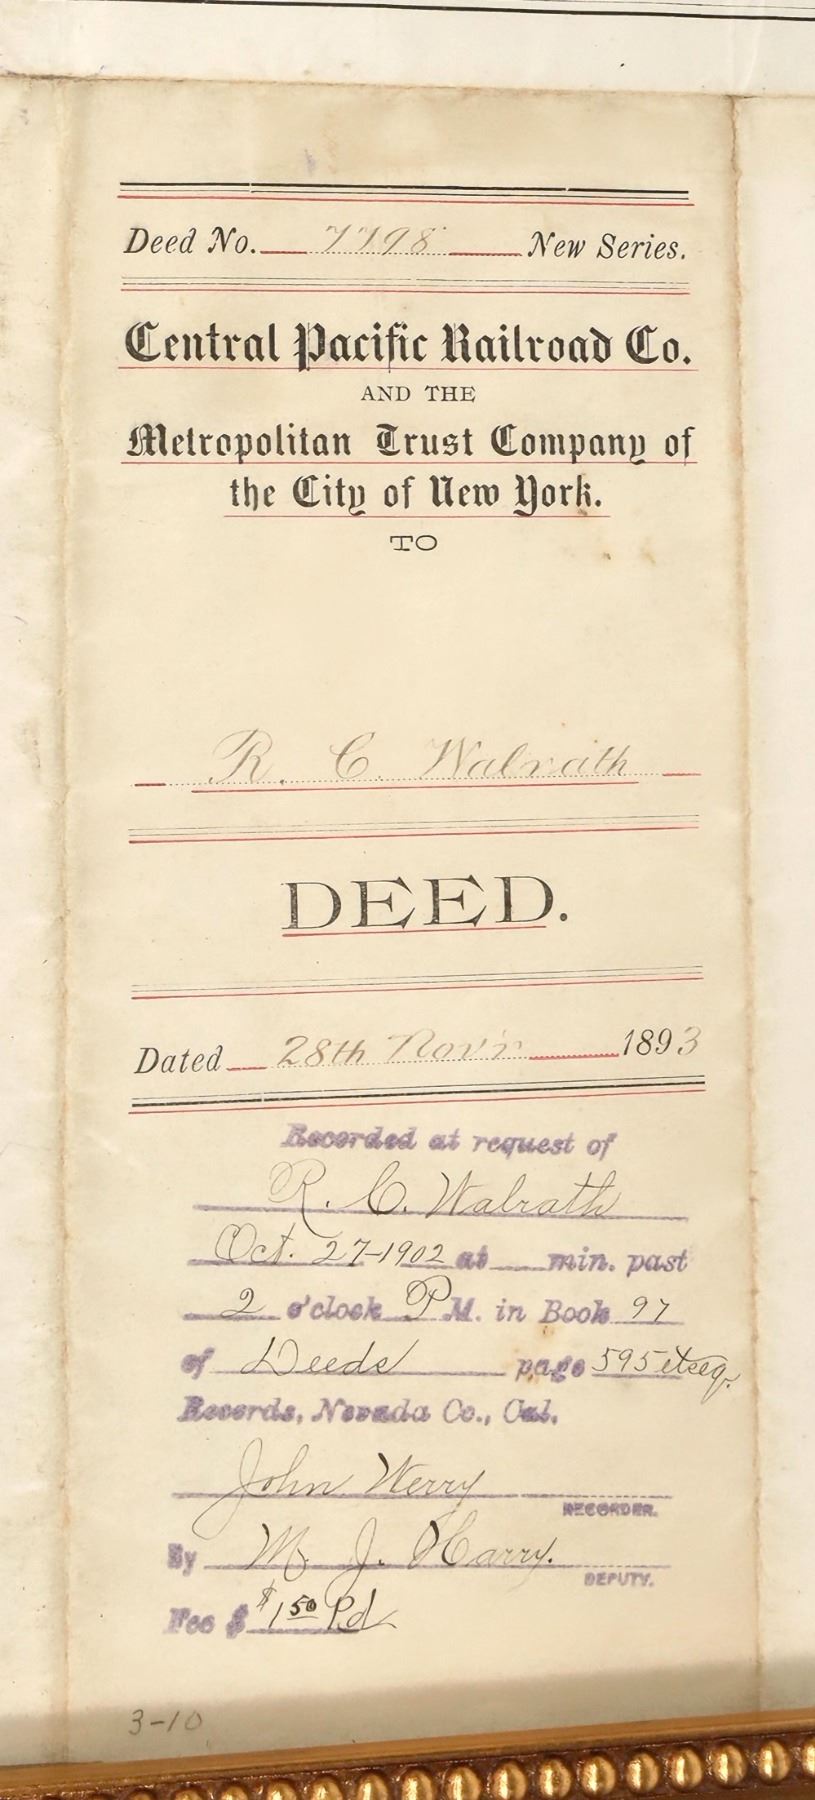 Deed No. 7798 New Series.
Central Pacific Railroad Co.
AND THE
Metropolitan Trust Company of
the City of New York.
TO
R. C. Walrath
DEED.
Dated 28th Nov'r 1893
Recorded at request of
R. C. Walrath
Oct. 27-1902 at min. past
2 o'clock P M. in Book 97
of Deeds page 595 et seq.
Records, Nevada Co., Cal.
John Werry
RECORDER.
By M. J. Harry.
DEPUTY.
Fee $ $1 50 Pd
3-10